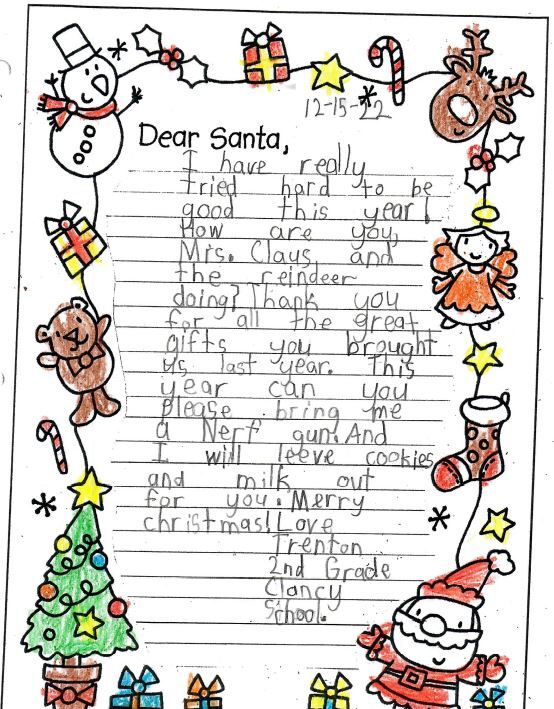 12-15-22
Dear Santa,
I have really
tried hard to be
good this year!
How are you,
Mrs. Claus and
the reindeer
doing? Thank you
for all the great
gifts you brought
us last year. This
year can you
please bring me
a Nerf gun. And
I will leeve cookies
and milk out
for you. Merry
christmas! Love
Trenton
2nd Grade
Clancy
School.